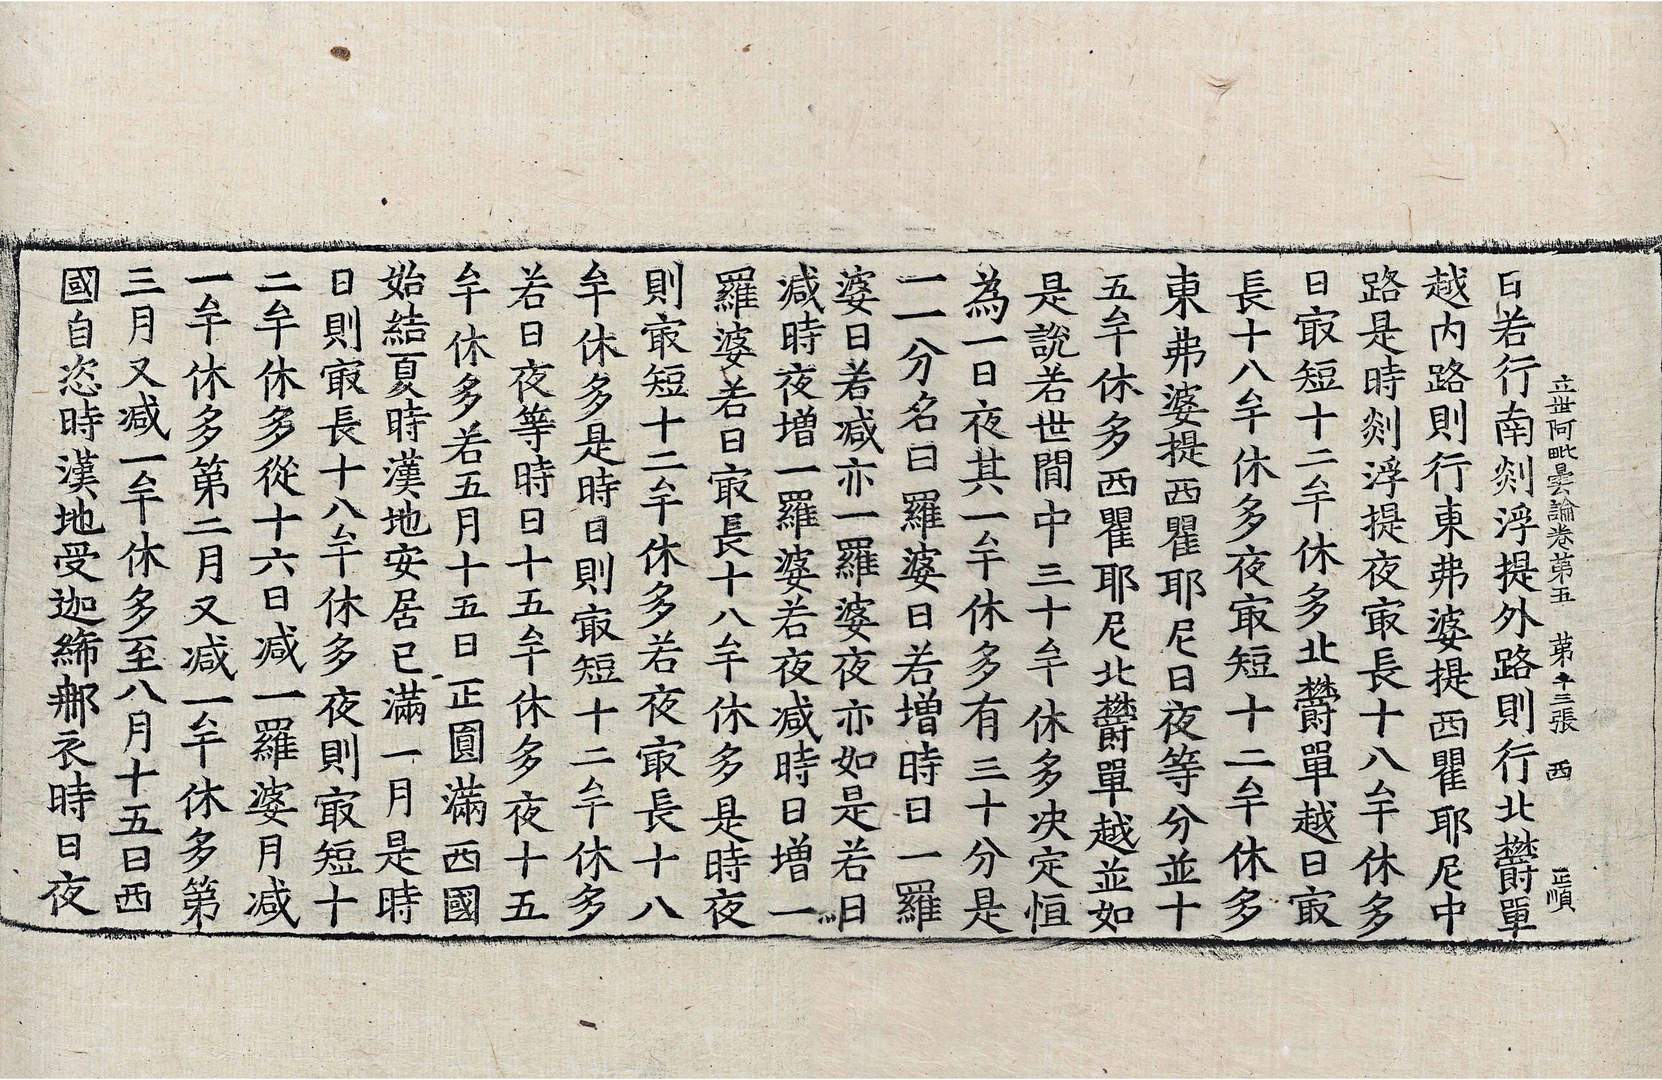 立世阿毗曇論卷第五 第十三張 西 正順
日若行南剡浮提外路則行北欝單
越内路則行東弗婆提西瞿耶尼中
路是時剡浮提夜㝡長十八牟休多
日㝡短十二牟休多北欝單越日㝡
長十八牟休多夜㝡短十二牟休多
東弗婆提西瞿耶尼日夜等分並十
五牟休多西瞿耶尼北欝單越並如
是說若世間中三十牟休多決定恒
為一日夜其一牟休多有三十分是
一一分名曰羅婆日若增時日一羅
婆日若減亦一羅婆夜亦如是若日
減時夜增一羅婆若夜減時日增一
羅婆若日㝡長十八牟休多是時夜
則㝡短十二牟休多若夜㝡長十八
牟休多是時日則㝡短十二牟休多
若日夜等時日十五牟休多夜十五
牟休多若五月十五日正圓滿西國
始結夏時漢地安居已滿一月是時
日則㝡長十八牟休多夜則㝡短十
二牟休多從十六日減一羅婆月減
一牟休多第二月又減一牟休多第
三月又減一牟休多至八月十五日西
國自恣時漢地受迦絺那衣時日夜